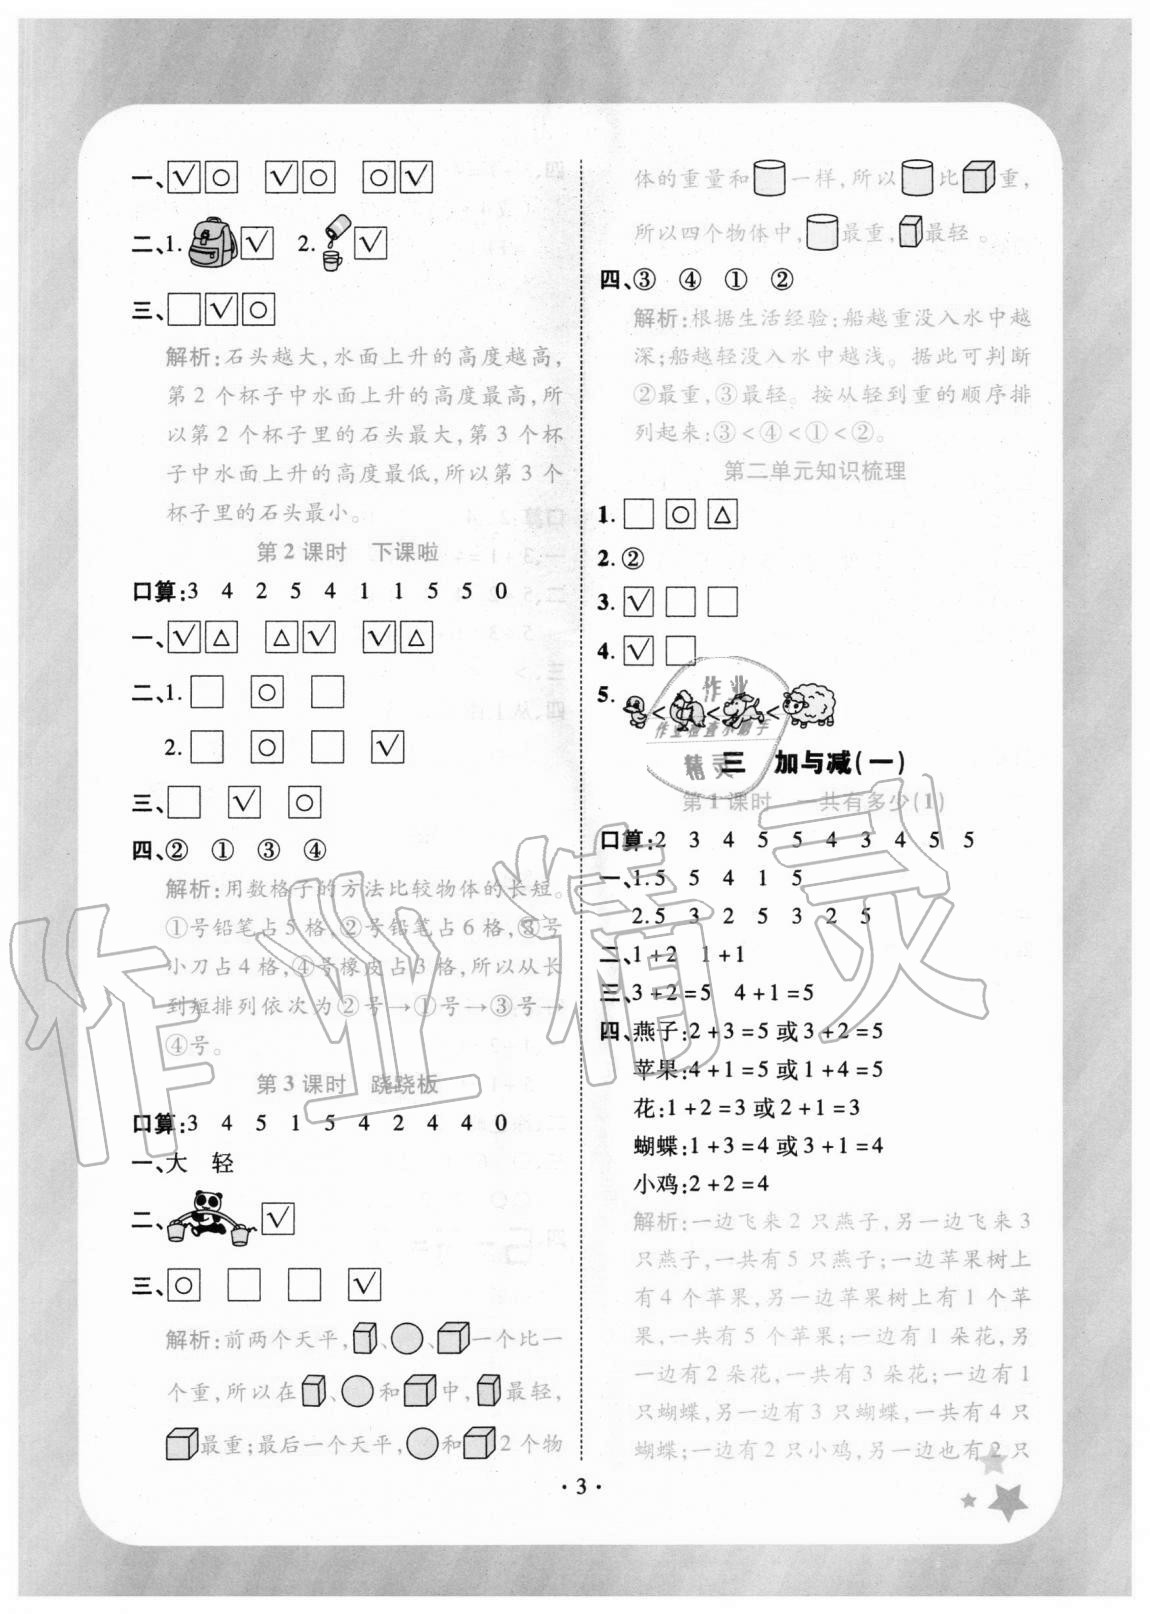 一、√○ √○ ○√
二、1. √ 2. √
三、□√○
解析:石头越大,水面上升的高度越高,
第2个杯子中水面上升的高度最高,所
以第2个杯子里的石头最大,第3个杯
子中水面上升的高度最低,所以第3个
杯子里的石头最小。
第2课时 下课啦
口算:3 4 2 5 4 1 1 5 5 0
一、√△ △√ √△
二、1.□ ○ □
2.□ ○ □ √
三、□ √ ○
四、② ① ③ ④
解析:用数格子的方法比较物体的长短。
①号铅笔占5格,②号铅笔占6格,③号
小刀占4格,④号橡皮占3格,所以从长
到短排列依次为②号→①号→③号→
④号。
第3课时 跷跷板
口算:3 4 5 1 5 4 2 4 4 0
一、大 轻
二、√
三、○ □ □ √
解析:前两个天平,、、一个比一
个重,所以在、和中,最轻,
最重;最后一个天平,和2个物
体的重量和一样,所以比重,
所以四个物体中,最重,最轻。
四、③ ④ ① ②
解析:根据生活经验:船越重没入水中越
深;船越轻没入水中越浅。据此可判断
②最重,③最轻。按从轻到重的顺序排
列起来:③<④<①<②。
第二单元知识梳理
1.□ ○ △
2.②
3.√ □ □
4.√ □
5.<<<
三 加与减(一)
第1课时 一共有多少(1)
口算:2 3 4 5 5 4 3 4 5 5
一、1.5 5 4 1 5
2.5 3 2 5 3 2 5
二、1+2 1+1
三、3+2=5 4+1=5
四、燕子:2+3=5或3+2=5
苹果:4+1=5或1+4=5
花:1+2=3或2+1=3
蝴蝶:1+3=4或3+1=4
小鸡:2+2=4
解析:一边飞来2只燕子,另一边飞来3
只燕子,一共有5只燕子;一边苹果树上
有4个苹果,另一边苹果树上有1个苹
果,一共有5个苹果;一边有1朵花,另
一边有2朵花,一共有3朵花;一边有1
只蝴蝶,另一边有3只蝴蝶,一共有4只
蝴蝶;一边有2只小鸡,另一边也有2只
·3·
作业
作业检查小助手
精灵
作业精灵